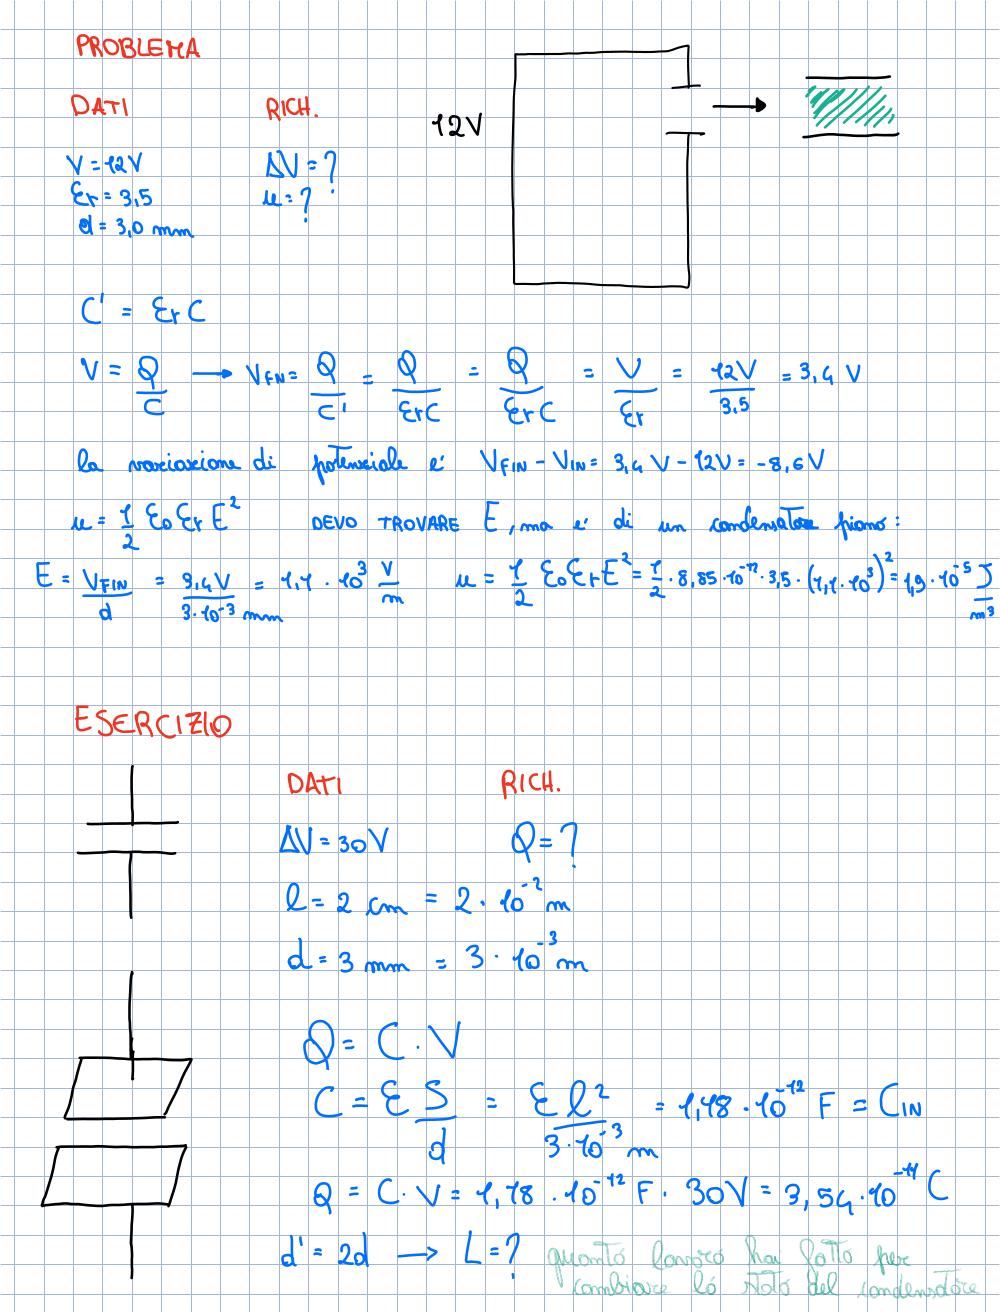 PROBLEMA
DATI RICH.
12V
V = 12V ΔV = ?
Er = 3,5 u = ?
d = 3,0 mm
C' = Er C
V = Q/C → VFIN = Q/C' = Q/ErC = Q/ErC = V/Er = 12V/3.5 = 3,4 V
la variazione di potenziale e' VFIN - VIN = 3,4 V - 12V = -8,6V
u = 1/2 E0 Er E² DEVO TROVARE E, ma e' di un condensatore piano:
E = VFIN/d = 3,4V/3·10⁻³ mm = 1,1 · 10³ V/m u = 1/2 E0 Er E² = 1/2 · 8,85 · 10⁻¹² · 3,5 · (1,1 · 10³)² = 1,9 · 10⁻⁵ J/m³
ESERCIZIO
DATI RICH.
ΔV = 30V Q = ?
l = 2 cm = 2 · 10⁻² m
d = 3 mm = 3 · 10⁻³ m
Q = C · V
C = E S/d = E l²/3·10⁻³ m = 1,18 · 10⁻¹² F = CIN
Q = C · V = 1,18 · 10⁻¹² F · 30V = 3,54 · 10⁻¹¹ C
d' = 2d → L = ? quanto lavoro hai fatto per
cambiare lo stato del condensatore